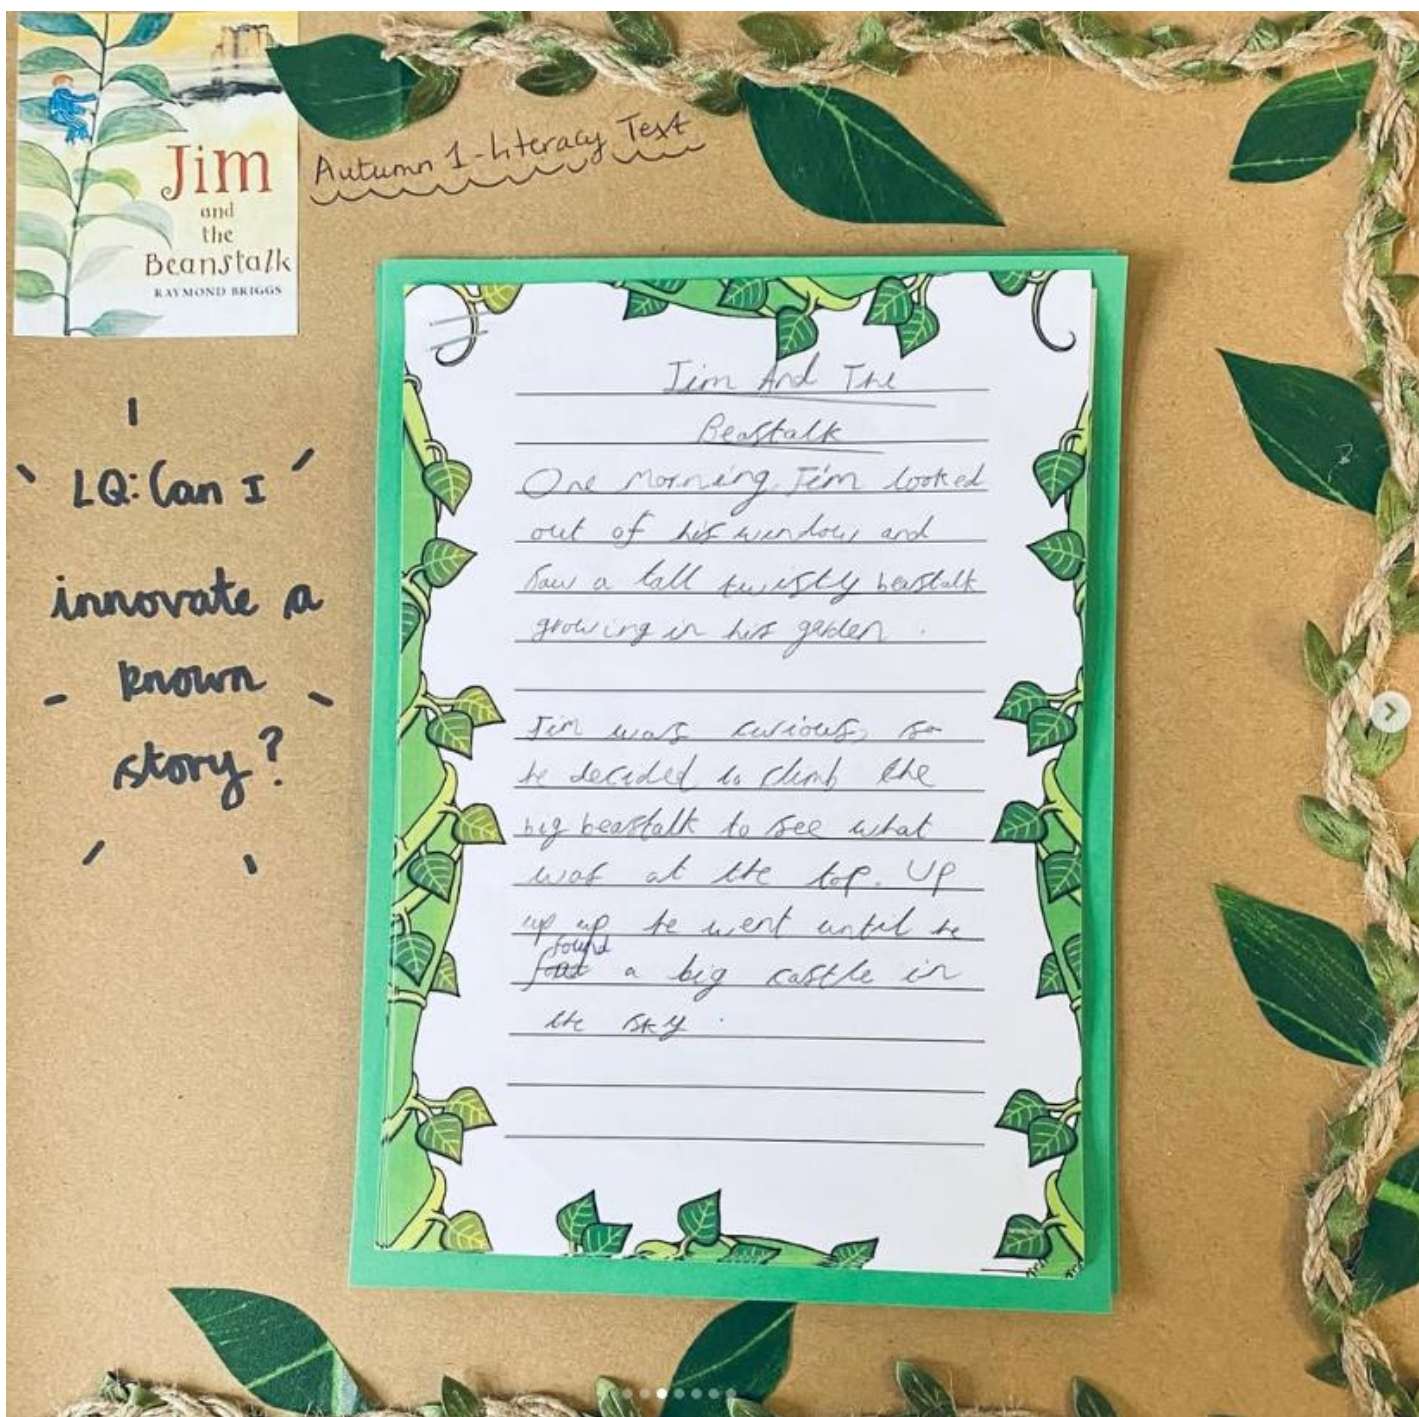 Jim
and
the
Beanstalk
RAYMOND BRIGGS
Autumn 1 - Literacy Text
LQ: Can I
innovate a
known
story?
Jim And The
Beastalk
One morning, Jim looked
out of his window and
saw a tall twisty beastalk
growing in his garden.
Jim was curious, so
he decided to climb the
big beastalk to see what
was at the top. Up
up up he went until he
found
a big castle in
the sky.